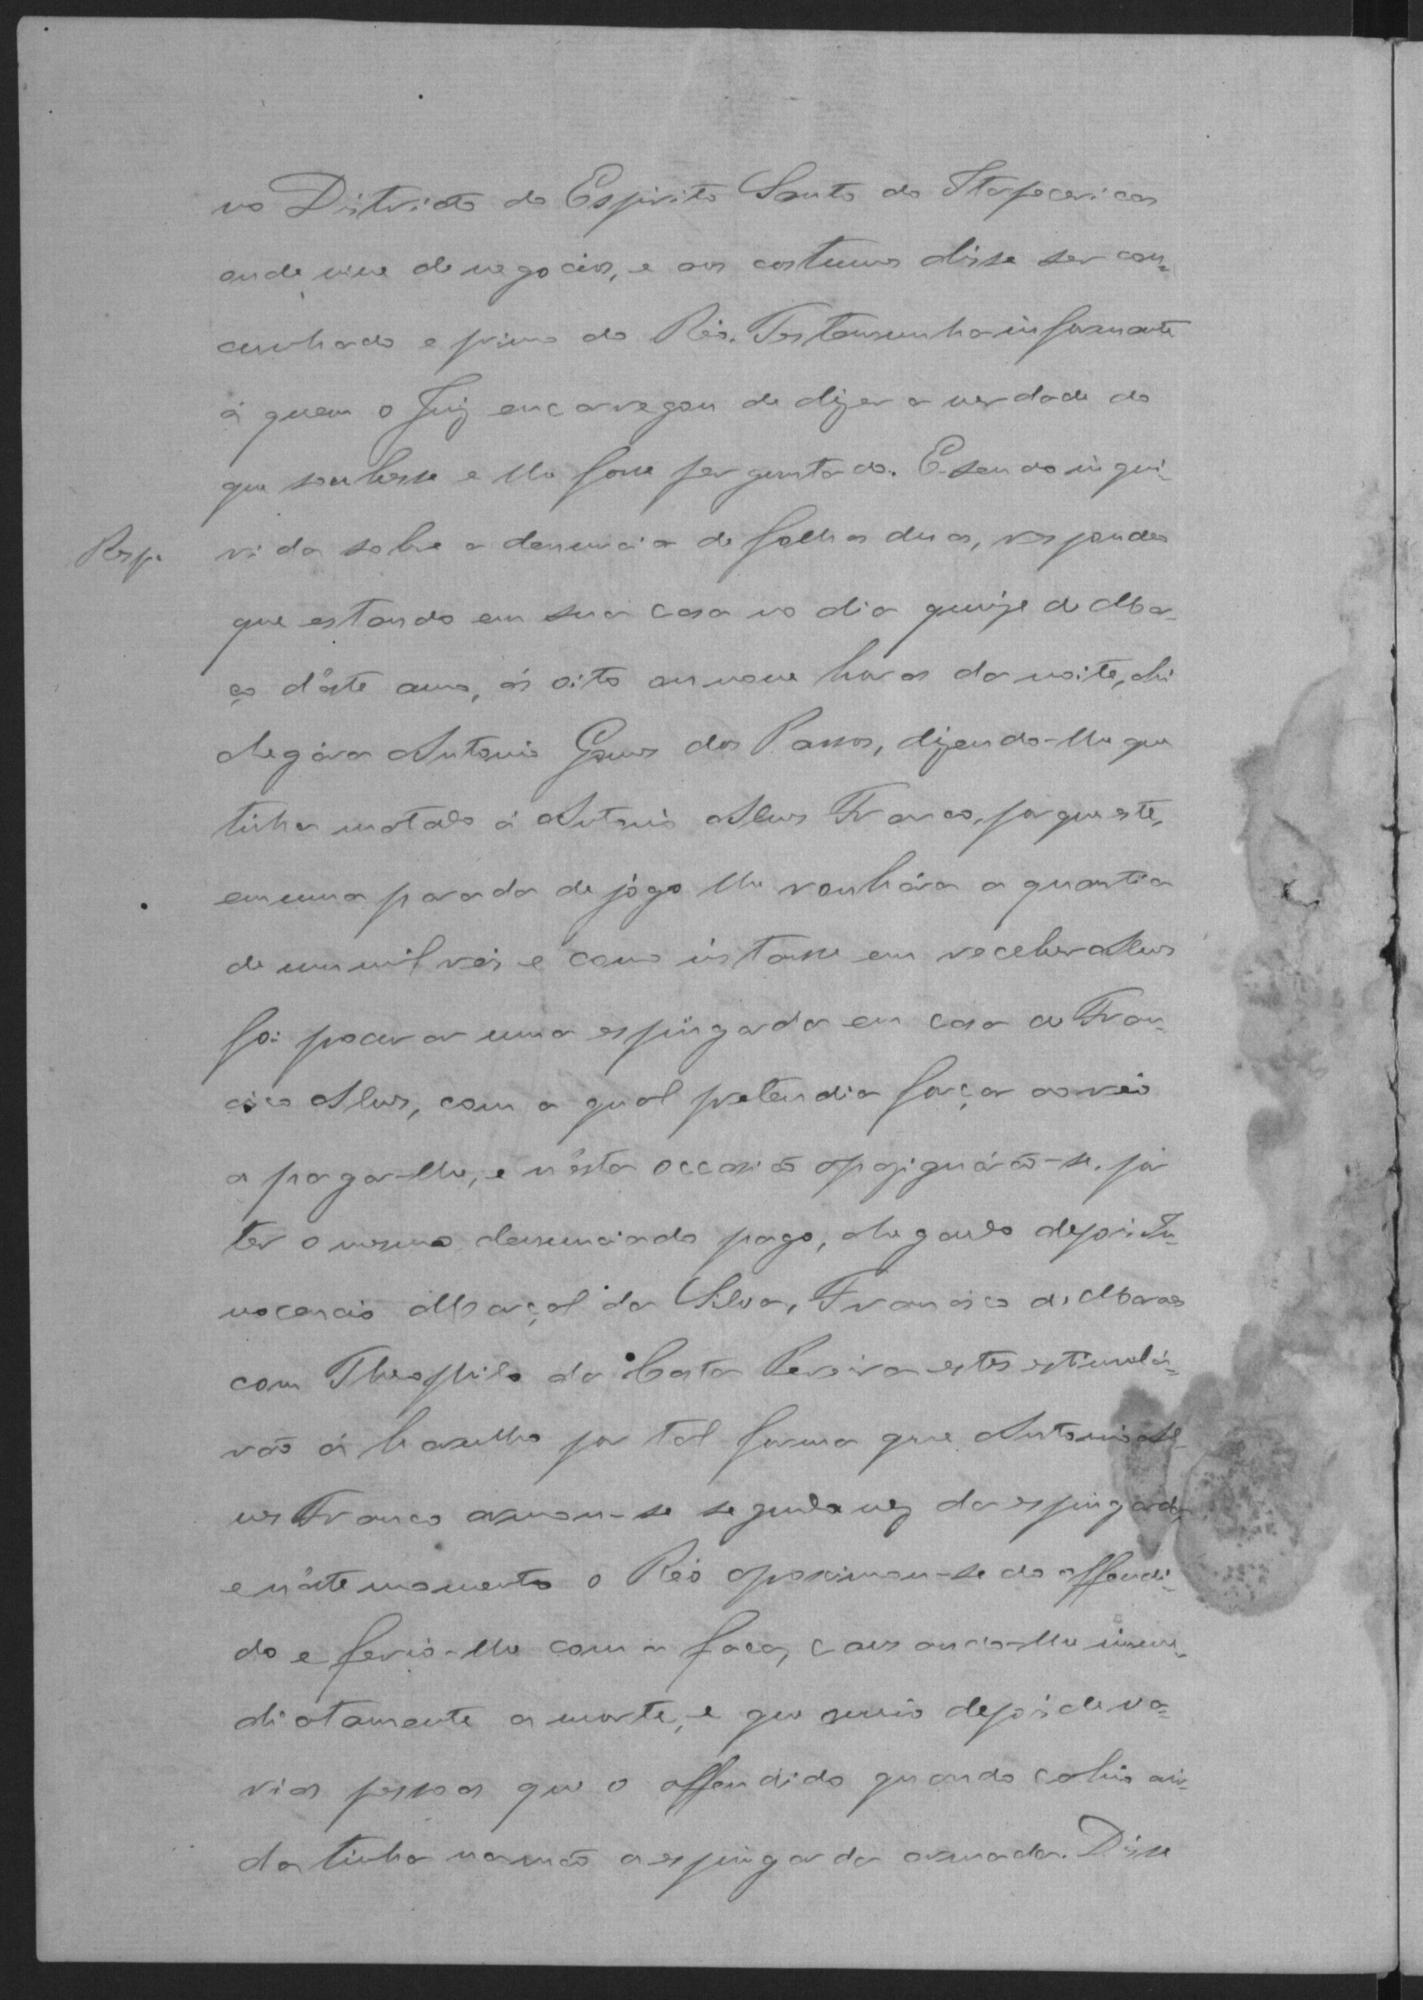 no Districto do Espirito Santo do Itapecerica
onde vive de negocios, e aos costumes disse ser con-
cunhado e primo do Réo. Testemunha informante
á quem o Juiz encarregou de dizer a verdade do
que soubesse e lhe fosse perguntado. E sendo inqui-
Resp. rida sobre a denuncia de folhas duas, respondeo
que estando em sua casa no dia quinze de Mar-
ço d'este anno, ás oito ou nove horas da noite, ahi
chegára Antonio Gomes dos Passos, dizendo-lhe que
tinha matado á Antonio Alves Franco, por que este,
em uma parada de jógo lhe ganhára a quantia
de um mil reis e como instasse em receber Alves
foi procurar uma espingarda em casa de Fran-
cisco Alves, com a qual pretendia forçar ao réo
a pagar-lhe, e n'esta occasião apaziguárão-se, por
ter o mesmo denunciado pago, chegando depois In-
nocencio Marçal da Silva, Francisco de Moraes
com Theophilo da Costa Pereira estes estimulá-
rão á barulho por tal forma que Antonio Al-
ves Franco armou-se segunda vez da espingarda
e n'este momento o Réo aproximou-se do offendi-
do e ferio-lhe com a faca, causando-lhe imme-
diatamente a morte, e que ouvio depois de va-
rias pessoas que o offendido quando cahio ain-
da tinha na mão a espingarda armada. Disse